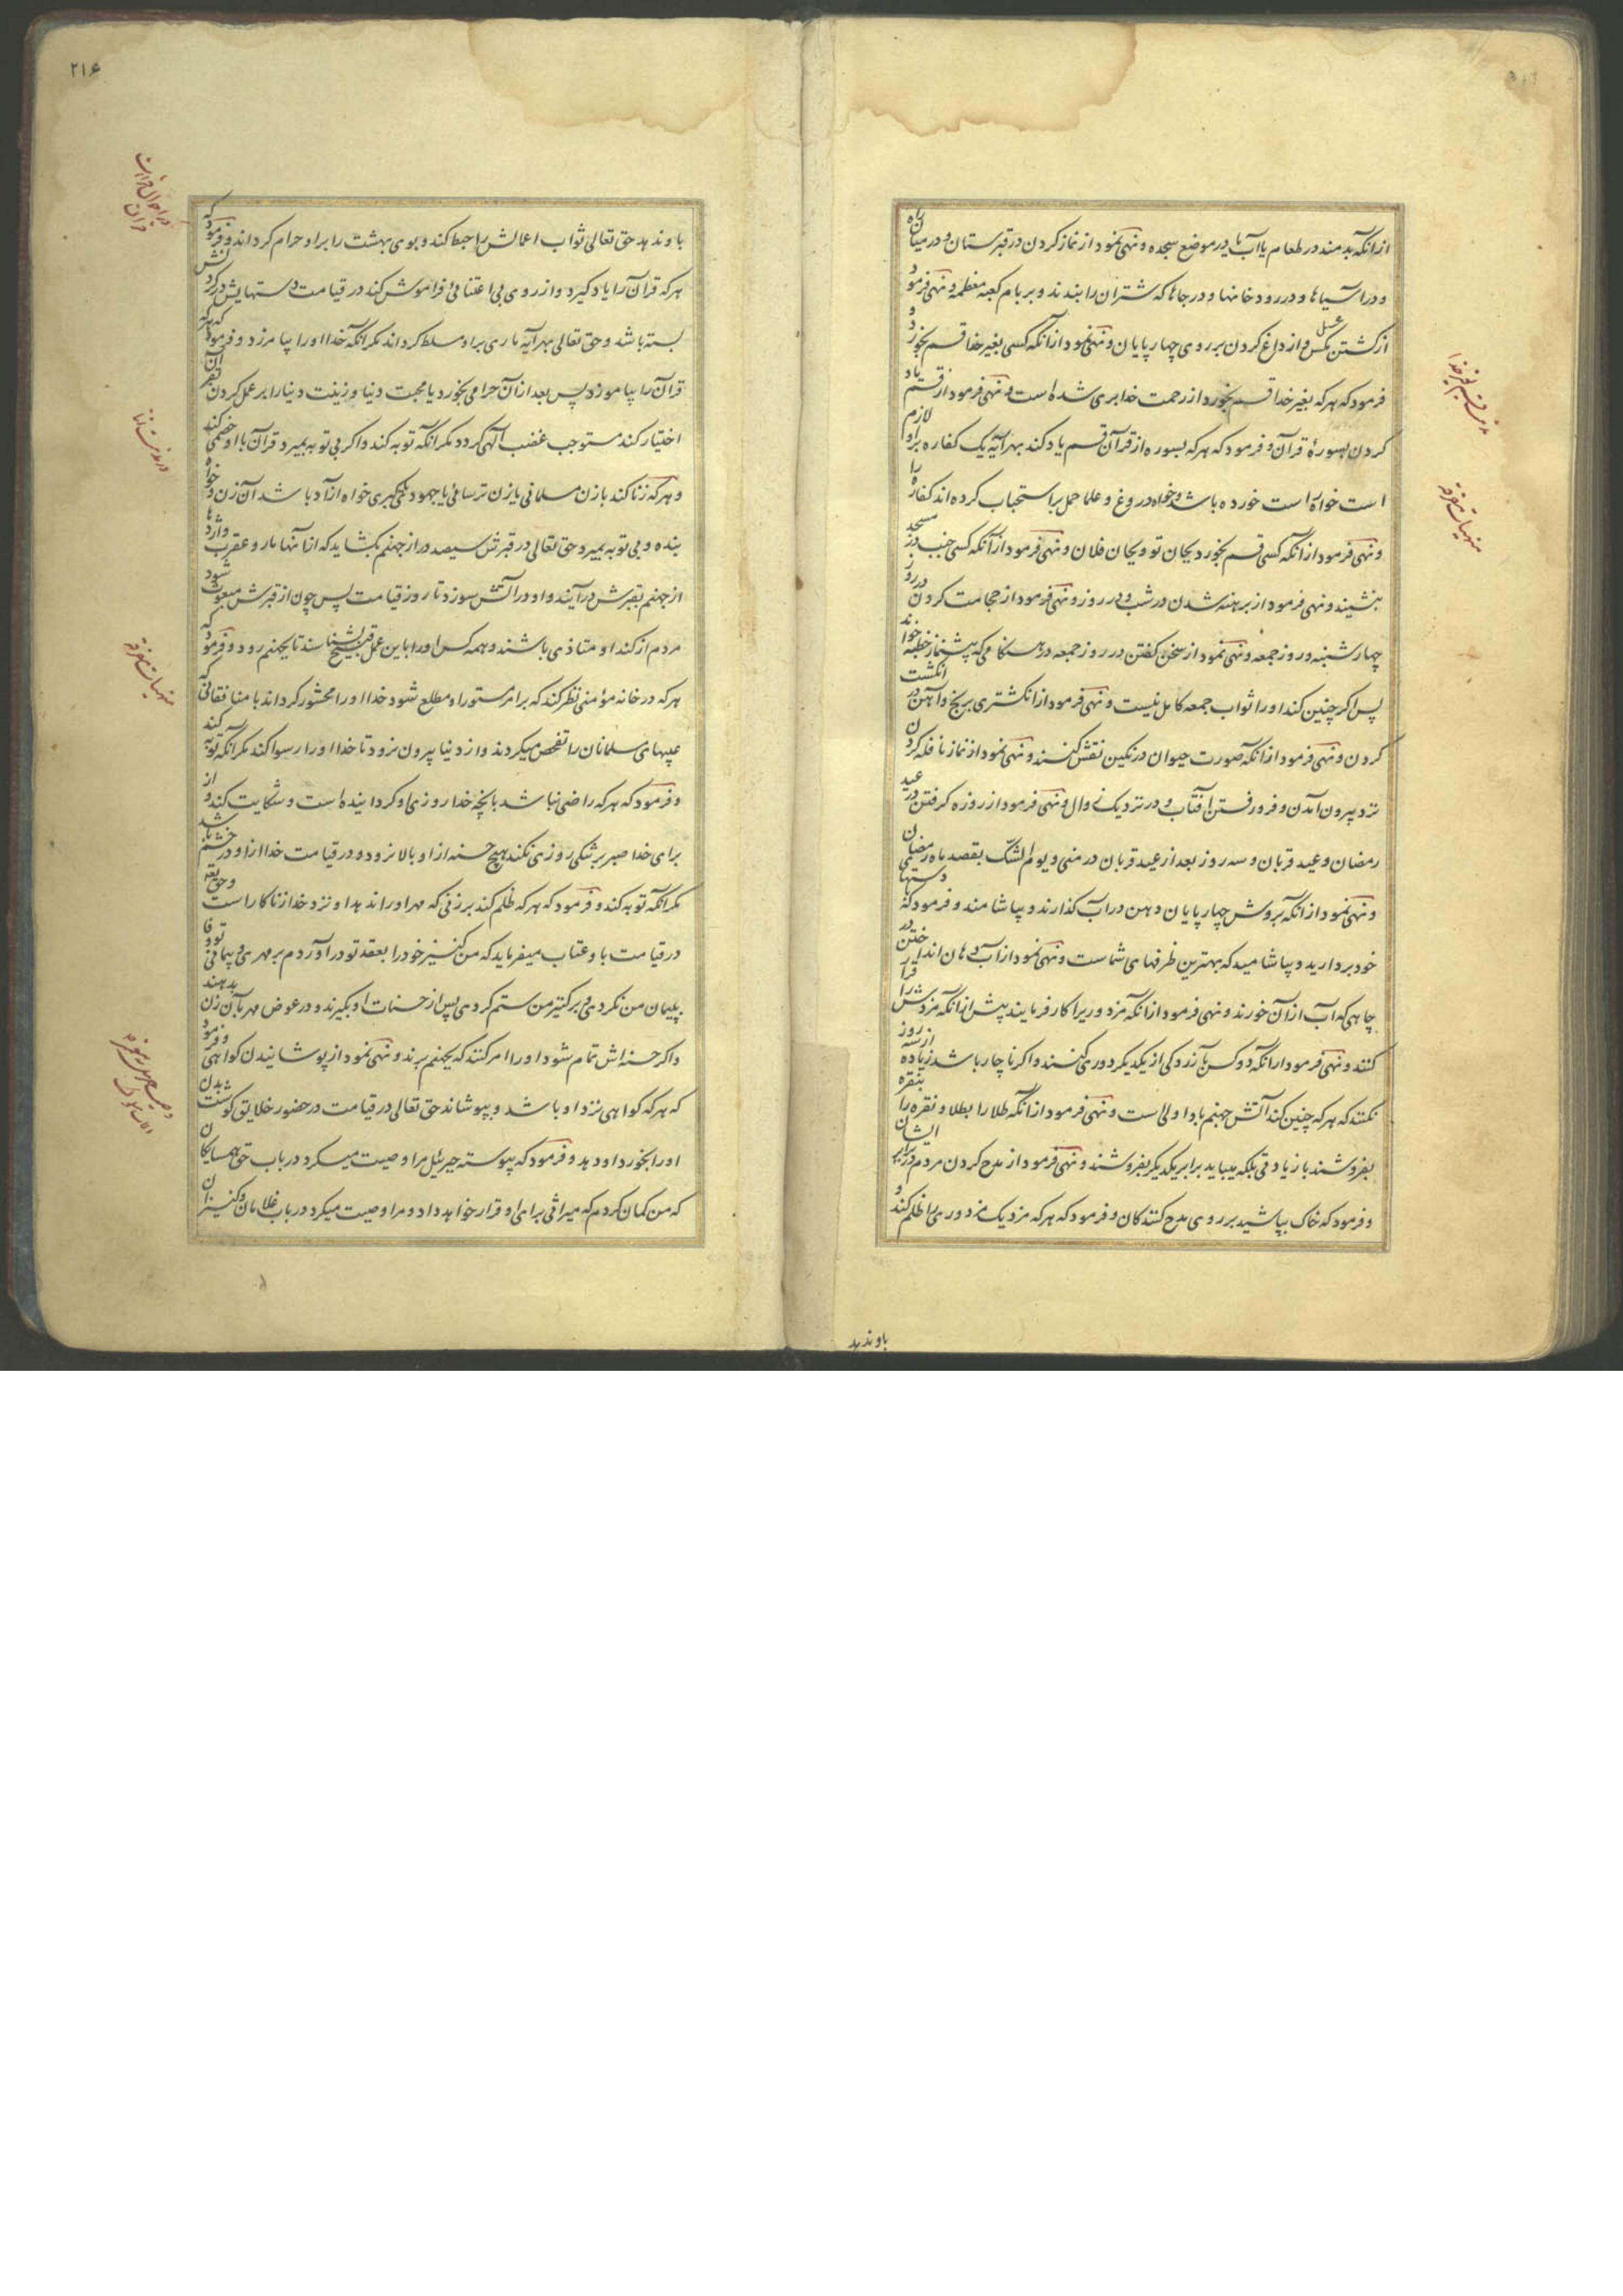 ازانکه بدمند در طعام یا آب یا در موضع سجده و نهی نمود از نماز کردن در قبرستان و در میان راه
و در آسیاها و در رودخانها و در جاها که شتران را بندند و بر بام کعبه معظمه و نهی فرمود
از کشتن مکس عسل و از داغ کردن بر روی چهارپایان و نهی نمود از آنکه کسی بغیر خدا قسم بخورد و
فرمود که هرکه بغیر خدا قسم بخورد از رحمت خدا بری شده است و نهی فرمود از قسم یاد
کردن بسورهٔ قرآن و فرمود که هرکه بسوره از قرآن قسم یاد کند بهر آیه یک کفاره براو لازم
است خواه راست خورده باشد و خواه دروغ و علما حمل بر استحباب کرده اند کفاره را
و نهی فرمود از انکه کسی قسم بخورد بجان تو و بجان فلان و نهی فرمود از آنکه کسی جنب در مسجد
بنشیند و نهی فرمود از برهنه شدن در شب و در روز و نهی فرمود از حجامت کردن در روز
چهارشنبه و روز جمعه و نهی نمود از سخن کفتن در روز جمعه در هنکامی که پیشنماز خطبه خواند
پس اکر چنین کند اورا ثواب جمعه کامل نیست و نهی فرمود از انکشتری برنج و آهن در انکشت
کردن و نهی فرمود از انکه صورت حیوان در نکین نقش کنند و نهی نمود از نماز نافله کردن
نزد بیرون آمدن و فرو رفتن آفتاب و در نزدیک زوال و نهی فرمود از روزه کرفتن در عید
رمضان و عید قربان و سه روز بعد از عید قربان در منی و یوم الشک بقصد ماه رمضان
و نهی نمود از انکه بروش چهارپایان دهن در آب کذارند و بیاشامند و فرمود که بدستهای
خود بردارید و بیاشامید که بهترین ظرفهای شماست و نهی نمود از آب دهان انداختن در
چاهی که آب از آن خورند و نهی فرمود از انکه مزدوریرا کار فرمایند پیش از انکه مزدش را قرار
کنند و نهی فرمود ازانکه دو کس بآزردکی از یکدیکر دوری کنند و اکر ناچار باشد زیاده از سه روز
نکنند که هرکه چنین کند آتش جهنم باو اولی است و نهی فرمود از انکه طلا را بطلا و نقره را بنقره
بفروشند با زیادتی بلکه میباید برابر یکدیکر بفروشند و نهی فرمود از مدح کردن مردم در برابر ایشان
و فرمود که خاک بپاشید بر روی مدح کنندکان و فرمود که هرکه مزدیک مزدوری را ظلم کند و
باو ندهد
۲۱۶
باو ندهد حق تعالی ثواب اعمالش را حبط کند و بوی بهشت را براو حرام کرداند و فرمود که
هرکه قرآن را یاد کیرد و از روی بی اعتنائی فراموش کند در قیامت دستهایش در کردنش
بسته باشد و حق تعالی بهر آیه ماری براو مسلط کرداند مکر آنکه خدا اورا بیامرزد و فرمود که هرکه
قرآن را بیاموزد پس بعد از آن حرامی بخورد یا محبت دنیا و زینت دنیا را بر عمل کردن بقرآن
اختیار کند مستوجب غضب الهی کردد مکر انکه توبه کند و اکر بی توبه بمیرد قرآن با او خصمی کند
و هرکه زنا کند با زن مسلمانی یا زن ترسائی یا جهود یا کبری خواه آزاد باشد آن زن و خواه
بنده و بی توبه بمیرد حق تعالی در قبرش سیصد در از جهنم بکشاید که از آنها مار و عقرب و اژدها
از جهنم بقبرش درآیند و او در آتش سوزد تا روز قیامت پس چون از قبرش مبعوث شود
مردم از کند او متاذی باشند و همه کس اورا باین عمل قبیح بشناسند تا بجهنم رود و فرمود که
هرکه در خانه مؤمنی نظر کند که بر امر مستور او مطلع شود خدا اورا محشور کرداند با منافقانی که
عیبهای مسلمانان را تفحص میکردند و از دنیا بیرون نرود تا خدا اورا رسوا کند مکر آنکه توبه کند
و فرمود که هرکه راضی نباشد بآنچه خدا روزی او کردانیده است و شکایت کند و از
برای خدا صبر بر تنکی روزی نکند هیچ حسنه از او بالا نرود و در قیامت خدا از او در خشم باشد
مکر انکه توبه کند و فرمود که هرکه ظلم کند بر زنی که مهر اورا ندهد او نزد خدا زناکار است و حق تعالی
در قیامت باو عتاب میفرماید که من کنیز خود را بعقد تو درآوردم بر مهری و پیمانی تو وفا
بپیمان من نکردی و بر کنیز من ستم کردی پس از حسنات او بکیرند و در عوض مهر بآن زن بدهند
و اکر حسنه اش تمام شود اورا امر کنند که بجهنم برند و نهی نمود از پوشانیدن کواهی و فرمود
که هرکه کواهی نزد او باشد و بپوشاند حق تعالی در قیامت در حضور خلایق کوشت بدن
اورا بخورد او دهد و فرمود که پیوسته جبرئیل مرا وصیت میکرد در باب حق همسایکان
که من کمان کردم که میراثی برای او قرار خواهد داد و مرا وصیت میکرد در باب غلامان و کنیزان